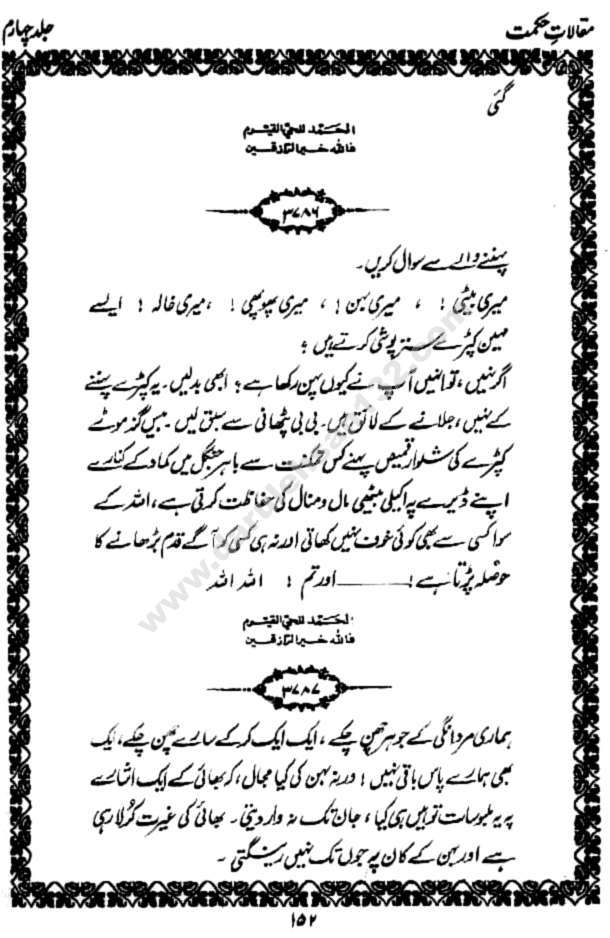 مقالاتِ حکمت
جلد چہارم
گئی
الحَمد للحیّ القیّوم
فاللہ خیرُ الرّازقین
۳۷۸۶
پہننے والے سے سوال کریں۔
میری بیٹی! ، میری بہن! ، میری پھوپھی! ، میری خالہ! ایسے
مہین کپڑے ستر پوشی کرتے ہیں؟
اگر نہیں، تو انہیں آپ نے کیوں پہن رکھا ہے؟ ابھی بدلیں۔ یہ کپڑے پہننے
کے نہیں، جلانے کے لائق ہیں۔ بی بی پٹھانی سے سبق لیں۔ بیس گز موٹے
کپڑے کی شلوار قمیص پہنے کس تمکنت سے باہر جنگل میں کماد کے کنارے
اپنے ڈیرے پہ اکیلی بیٹھی مال و منال کی حفاظت کرتی ہے، اللہ کے
سوا کسی سے بھی کوئی خوف نہیں کھاتی اور نہ ہی کسی کو آگے قدم بڑھانے کا
حوصلہ پڑتا ہے! ——— اور تم! اللہ اللہ
الحَمد للحیّ القیّوم
فاللہ خیرُ الرّازقین
۳۷۸۷
ہماری مردانگی کے جوہر چھن چکے، ایک ایک کر کے سارے چھن چکے، ایک
بھی ہمارے پاس باقی نہیں! ورنہ بہن کی کیا مجال، کہ بھائی کے ایک اشارے
پہ یہ ملبوسات تو ہیں ہی کیا، جان تک نہ وار دیتی۔ بھائی کی غیرت کُرلا رہی
ہے اور بہن کے کان پہ جوں تک نہیں رینگتی۔
۱۵۲